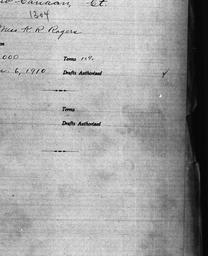 Canaan, Ct.
1304
Miss K R Rogers
000 Terms 10%.
6, 1910 Drafts Authorized
Terms
Drafts Authorized